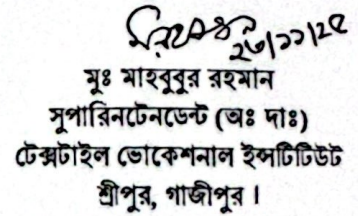 ২৩/১১/২৫
মুঃ মাহবুবুর রহমান
সুপারিনটেনডেন্ট (অঃ দাঃ)
টেক্সটাইল ভোকেশনাল ইন্সটিটিউট
শ্রীপুর, গাজীপুর ।